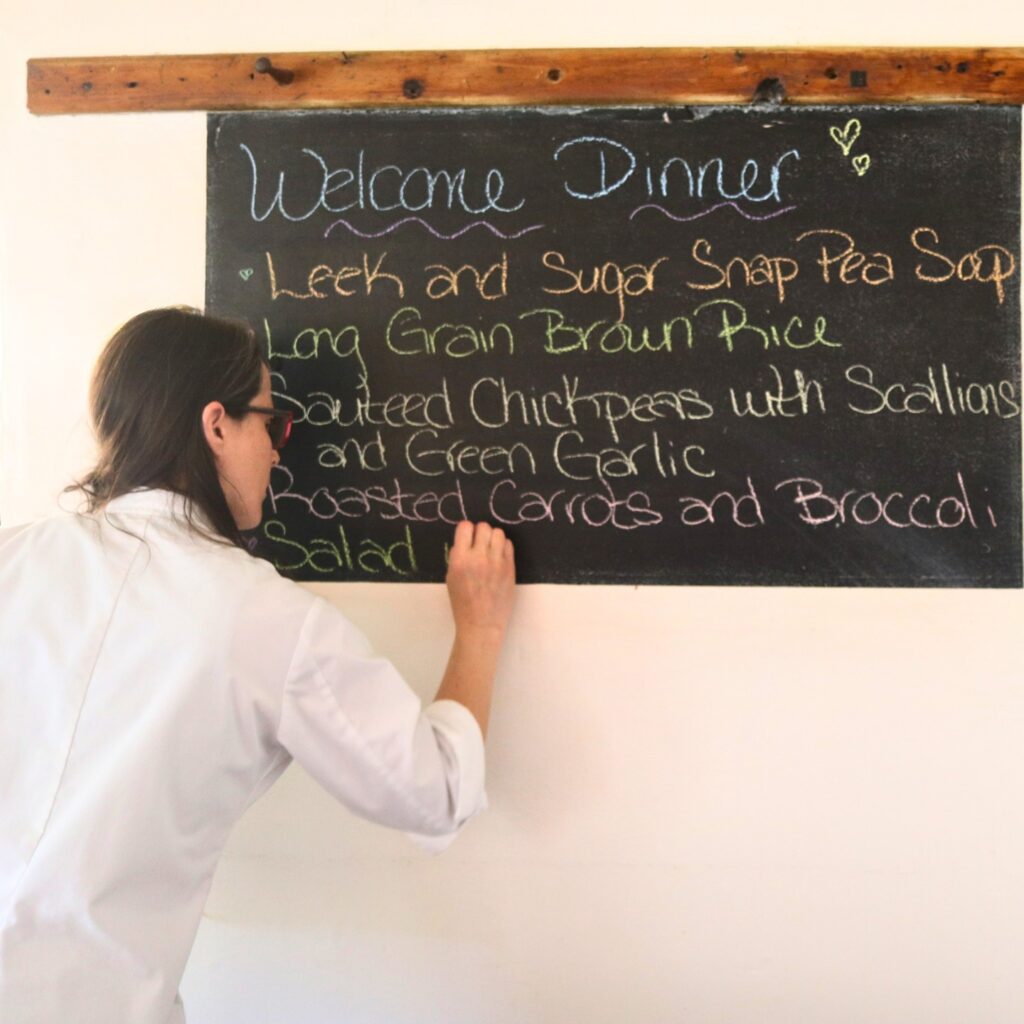 Welcome Dinner
Leek and Sugar Snap Pea Soup
Long Grain Brown Rice
Sauteed Chickpeas with Scallions
and Green Garlic
Roasted Carrots and Broccoli
Salad